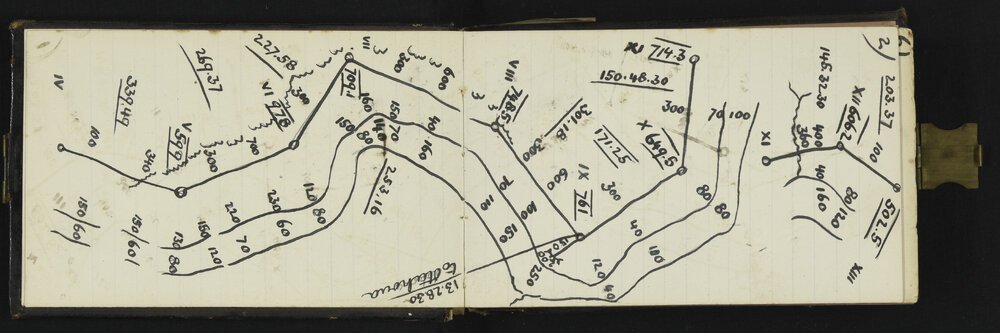 IV
339.49
100
340
V 599
300
269.37
227.58
VI 978
300
700
VII
300
600
709.1
160
150
80
140
150
70
40
160
253.16
120
80
230
60
220
70
160
120
130
80
150/60/
150/60/
VIII 748.5
3
3
300
401.18
171.25
IX 761
600
300
X 649.5
XI 714.3
150.48.30
300
70
100
70
110
100
150
250
120
40
40
180
80
80
13.28.30
to
2)
203.37
XII 606.2
100
145.32.30
400
360
40
160
80/120
XI
502.5
XIII